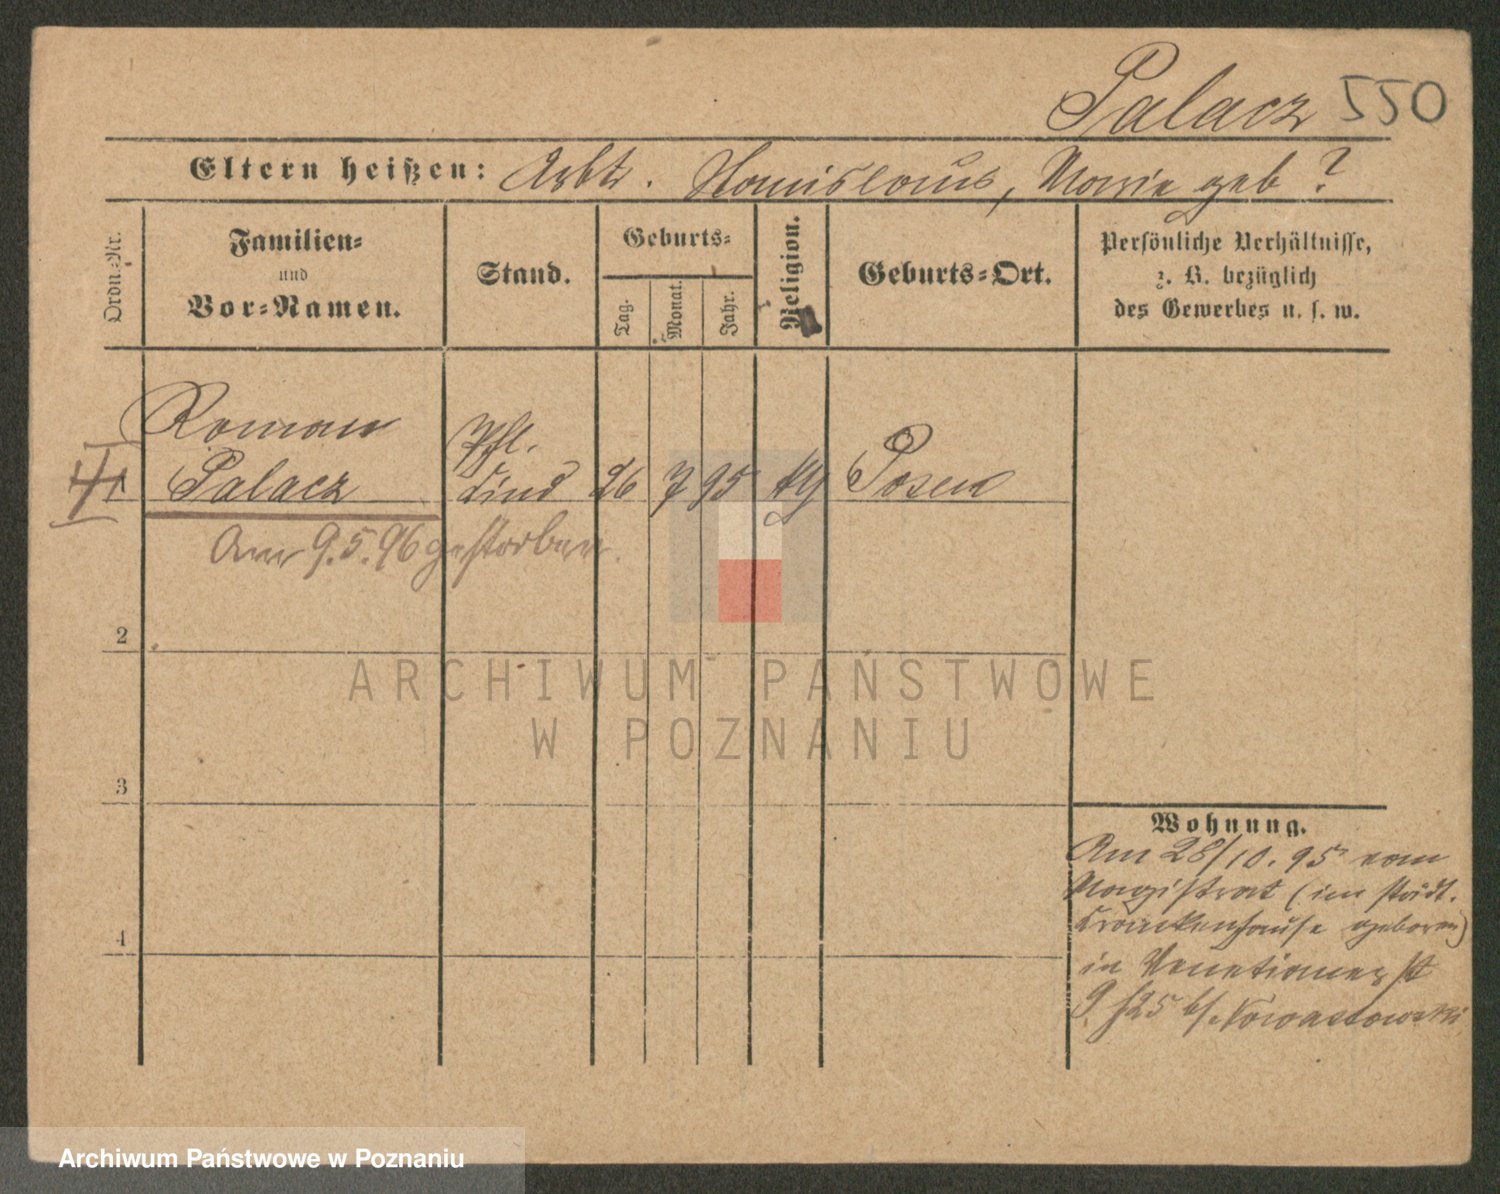 Palacz 550
Eltern heißen: Arbtr. Stanislaus, Marie geb ?
Ordn.-Nr.
Familien-
und
Vor-Namen.
Stand.
Geburts-
Tag.
Monat.
Jahr.
Religion.
Geburts-Ort.
Persönliche Verhältnisse,
z. B. bezüglich
des Gewerbes u. s. w.
Roman
Palacz
Pfl.
Kind
26 7 95 kth Posen
Am 9.5.96 gestorben.
2
3
4
Wohnung.
Am 28/10. 95 vom
Magistrat (im städt.
Krankenhause geboren)
in Venetianerst
9 b/
ARCHIWUM PAŃSTWOWE
W POZNANIU
Archiwum Państwowe w Poznaniu